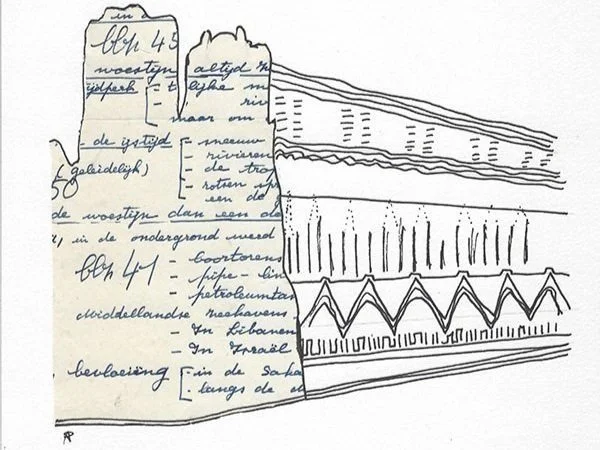 in d
blz 45
woestijn altijd
ijdperk - t lijke m
riv
maar om
- de ijstijd - sneeuw
(geleidelijk) - rivieren
50 - de tra
- rotsen sp
een de
de woestijn dan een do
in de ondergrond werd
blz 41 - boortorens
- pipe-lin
- petroleumta
Middellandse zeehavens
- In Libanon
- In Israël
bevloeiing - in de Saha
- langs de